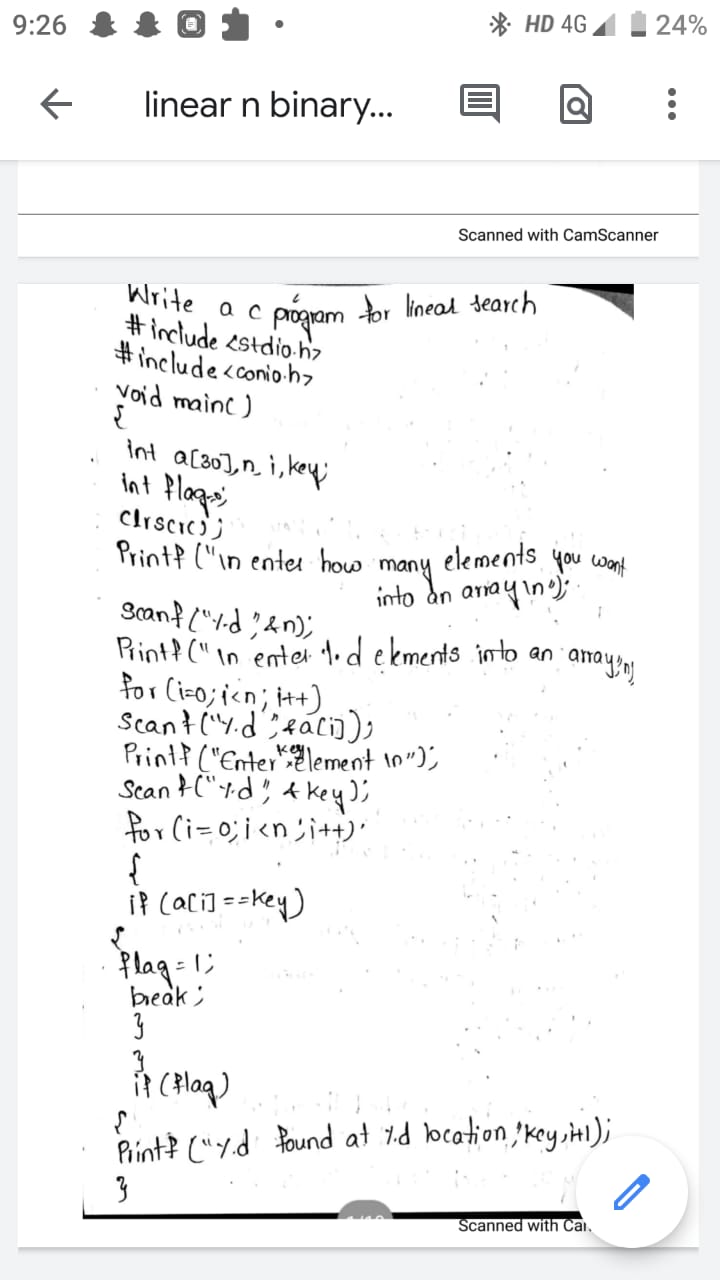 9:26
HD 4G 24%
linear n binary...
Scanned with CamScanner
Write a c program for linear search
#include <stdio.h>
#include <conio.h>
void main()
{
int a[30],n i,key;
int flag=0;
clrscr();
Printf ("\n enter how many elements you want
into an array\n");
Scanf ("%d",&n);
Printf ("\n enter %d elements into an array",n)
for (i=0;i<n; i++)
Scanf ("%d",&a[i]);
Printf ("Enter key element \n");
Scanf ("%d", &key);
for (i=0;i<n;i++)
{
if (a[i]==key)
{
flag=1;
break;
}
}
if (flag)
{
Printf ("%d found at %d location,"key,i+1);
}
Scanned with